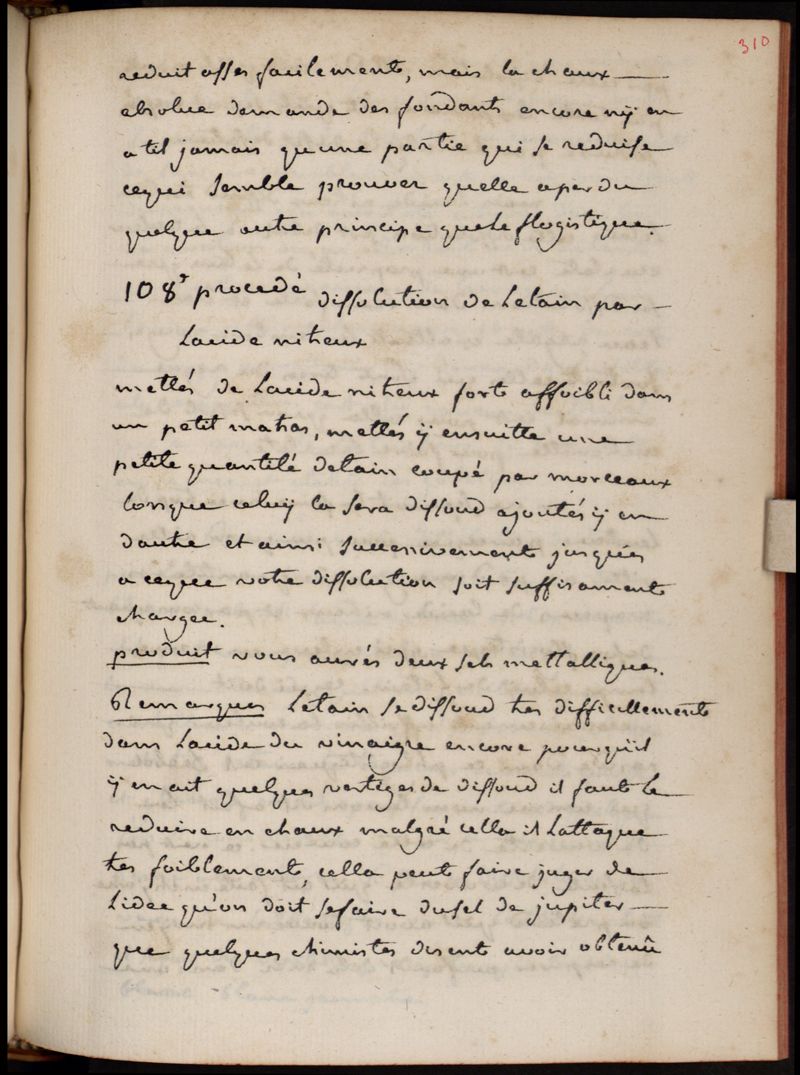 310
reduit assés facilement, mais la chaux
absolue demande des fondants encore nÿ en
a til jamais quune partie qui se reduise
cequi semble prouver quelle aperdu
quelque autre principe quele flogistique.
108e procedé dissolution de Letain par
Lacide nitreux
mettés de Lacide nitreux fort affoibli dans
un petit matras, mettés ÿ ensuitte une
petite quantité detain coupé par morceaux
lorsque celuÿ la sera dissoud ajoutés ÿ en
dautre et ainsi successivement jusques
a ceque votre dissolution soit suffisament
chargee.
produit vous aurés deux sels mettalliques.
Remarques Letain se dissoud tres difficillement
dans Lacide du vinaigre encore pourquil
ÿ en ait quelques vestiges de dissoud il faut le
reduire en chaux malgré cella il Lattaque
tres foiblement, cella peut faire juger de
Lidee qu'on doit sefaire dusel de jupiter
que quelques chimistes disent avoir obtenû